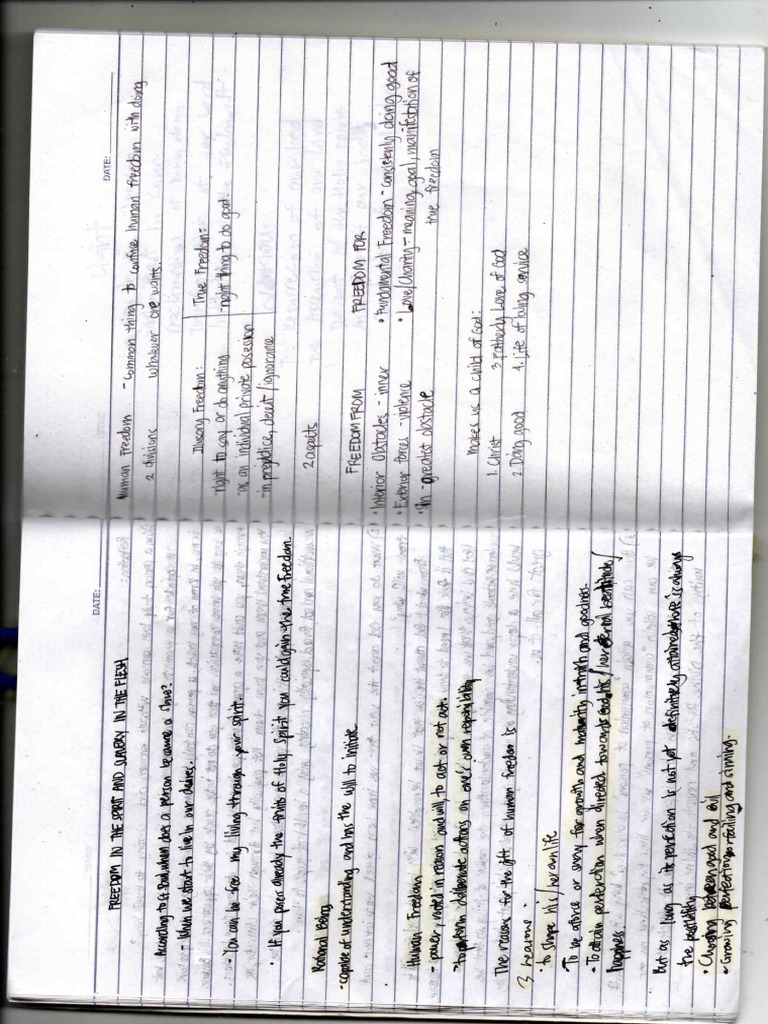 DATE:
FREEDOM IN THE SPIRIT AND SLAVERY IN THE FLESH
According to St. Paul, when does a person became a slave?
- When we start to live in our desires.
• You can be free my living through your spirit.
• If you posess already the fruits of Holy Spirit you could gain the true freedom.
Rational Being
- capable of understanding and has the will to initiate
Human Freedom
- power, rooted in reason and will, to act or not act.
- to perform deliberate actions on one's own responsibility
The reasons for the gift of human freedom is
3 reasons:
• to shape his/her own life
- To be a force or for growth and maturity in truth and goodness.
- To attain perfection when directed towards God, his/her eternal beatitude/
happiness
But as long as its perfection is not yet definitely attained, there is always
the possibility
• Choosing between good and evil
• Growing perfection or failing and sinning.
DATE:
Human Freedom - common thing to confuse human freedom with doing
2 divisions whatever one wants.
Illusory Freedom: True Freedom:
right to say or do anything - right thing to do good.
- as an individual private posession
- in prejudice, deceit / ignorance
2 aspects
FREEDOM FROM FREEDOM FOR
• Interior Obstacles - inner • Fundamental Freedom - consistently doing good
• Exterior forces - violence • Love/Charity - meaning, goal, manifestation of
• Sin - greatest obstacle true freedom
makes us a child of God:
1. Christ 3. Fatherly Love of God
2. Doing good 4. Life of loving service